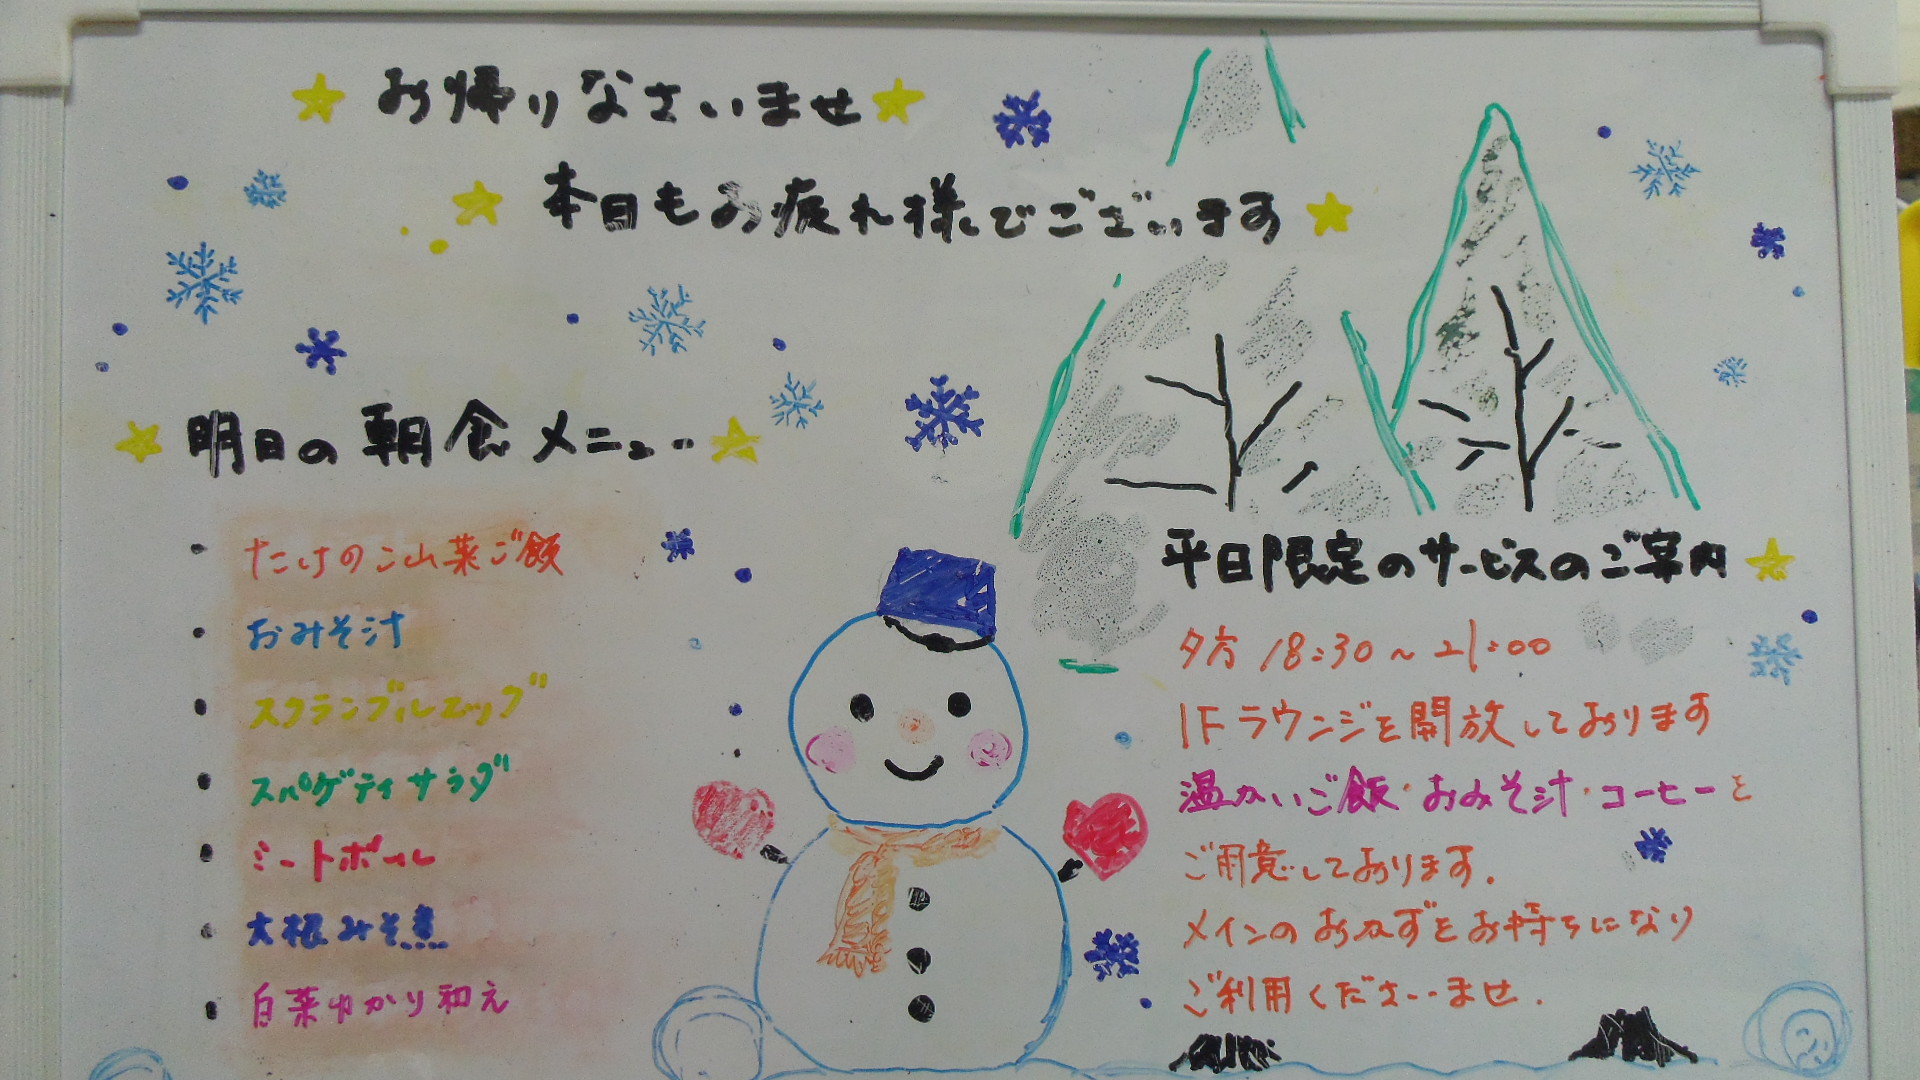 お帰りなさいませ
本日もお疲れ様でございます
明日の朝食メニュー
・たけのこ山菜ご飯
・おみそ汁
・スクランブルエッグ
・スパゲティサラダ
・ミートボール
・大根みそ煮
・白菜ゆかり和え
平日限定のサービスのご案内
夕方 18:30~21:00
1Fラウンジを開放しております
温かいご飯・おみそ汁・コーヒーを
ご用意しております.
メインのおかずをお持ちになり
ご利用くださいませ.